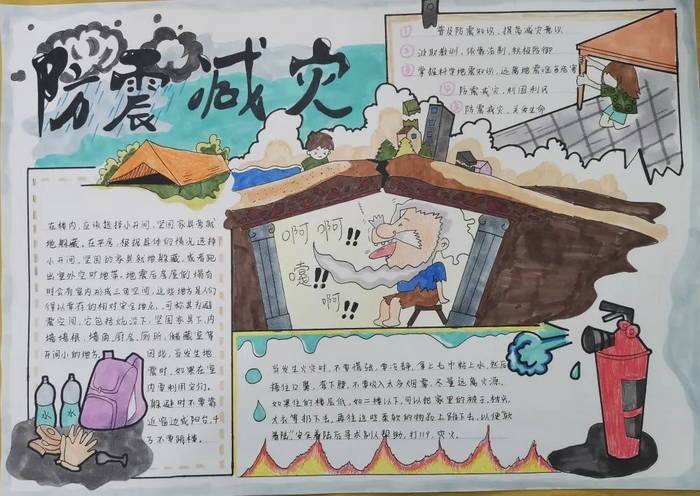 防震减灾
① 普及防震知识,提高减灾意识
② 汲取教训,依靠法制,积极防御
③ 掌握科学地震知识,远离地震谣言危害
④ 防震减灾,利国利民
⑤ 防震减灾,关爱生命
在楼内,应该选择小开间、坚固家具旁就
地躲藏。在平房,根据具体的情况选择
小开间、坚固的家具就地躲藏,或者跑
出室外空旷地带。地震后房屋倒塌有
时会有室内形成三角空间,这些地方是人们
得以幸存的相对安全地点,可称其为避
震空间,它包括炕沿下、坚固家具下、内
墙墙根、墙角、厨房、厕所、储藏室等
开间小的地方。
因此,当发生地
震时,如果在室
内要利用它们。
躲避时不要靠
近窗边或阳台,千
万不要跳楼。
水
水
啊啊!!
嚏!!
啊!!
当发生火灾时,不要慌张,要冷静,拿上毛巾粘上水,然后
捂住口鼻,弯下腰,不要吸入太多烟雾,尽量远离火源。
如果住的楼层低,如三楼以下,可以把家里的被子、枕头、
大衣等扔下去,再往这些柔软的物品上跳下去,以便软
着陆"安全着陆后寻求别人帮助,打119,灭火。